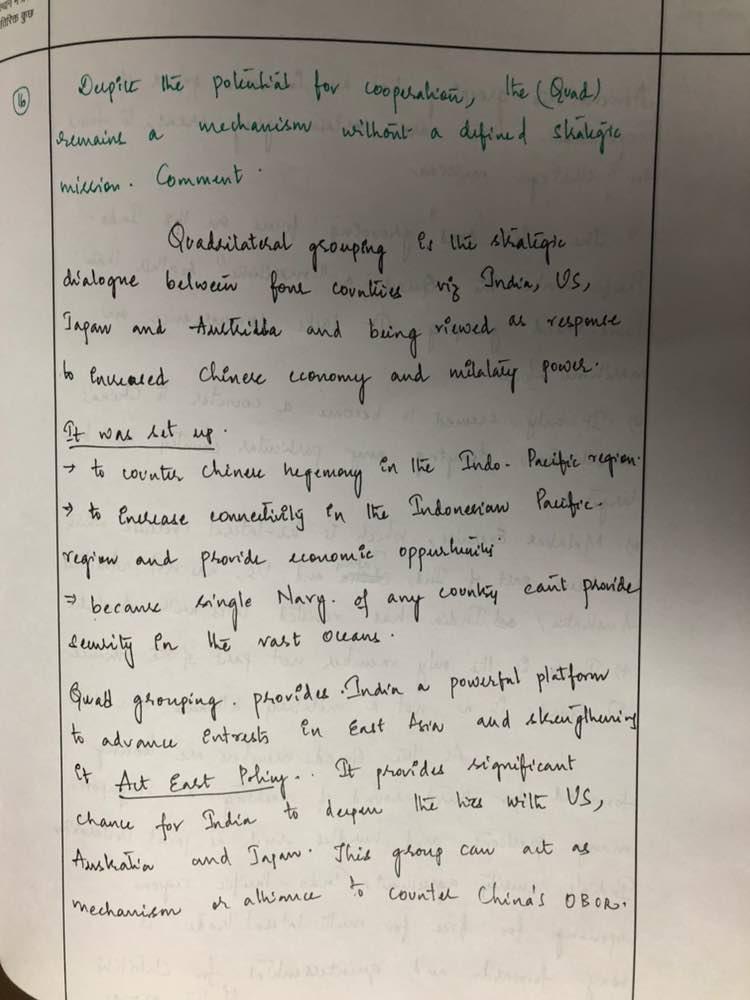 तिरिक्त कुछ
16 Despite the potential for cooperation, the (Quad)
remains a mechanism without a defined strategic
mission. Comment.
Quadrilateral grouping is the strategic
dialogue between four countries viz India, US,
Japan and Australia and being viewed as response
to increased Chinese economy and military power.
It was set up.
→ to counter Chinese hegemony in the Indo-Pacific region.
→ to increase connectivity in the Indonesian Pacific.
region and provide economic opportunities.
⇒ because single Navy. of any country can't provide
security in the vast oceans.
Quad grouping. provides. India a powerful platform
to advance entrests in East Asia and strengthening
it Act East Policy.. It provides significant
chance for India to deepen the ties with US,
Australia and Japan. This group can act as
mechanism or alliance to counter China's OBOR.